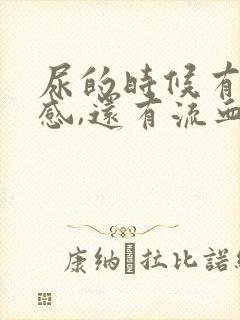 尿的時候有
感,還有流血
康納 拉比諾維